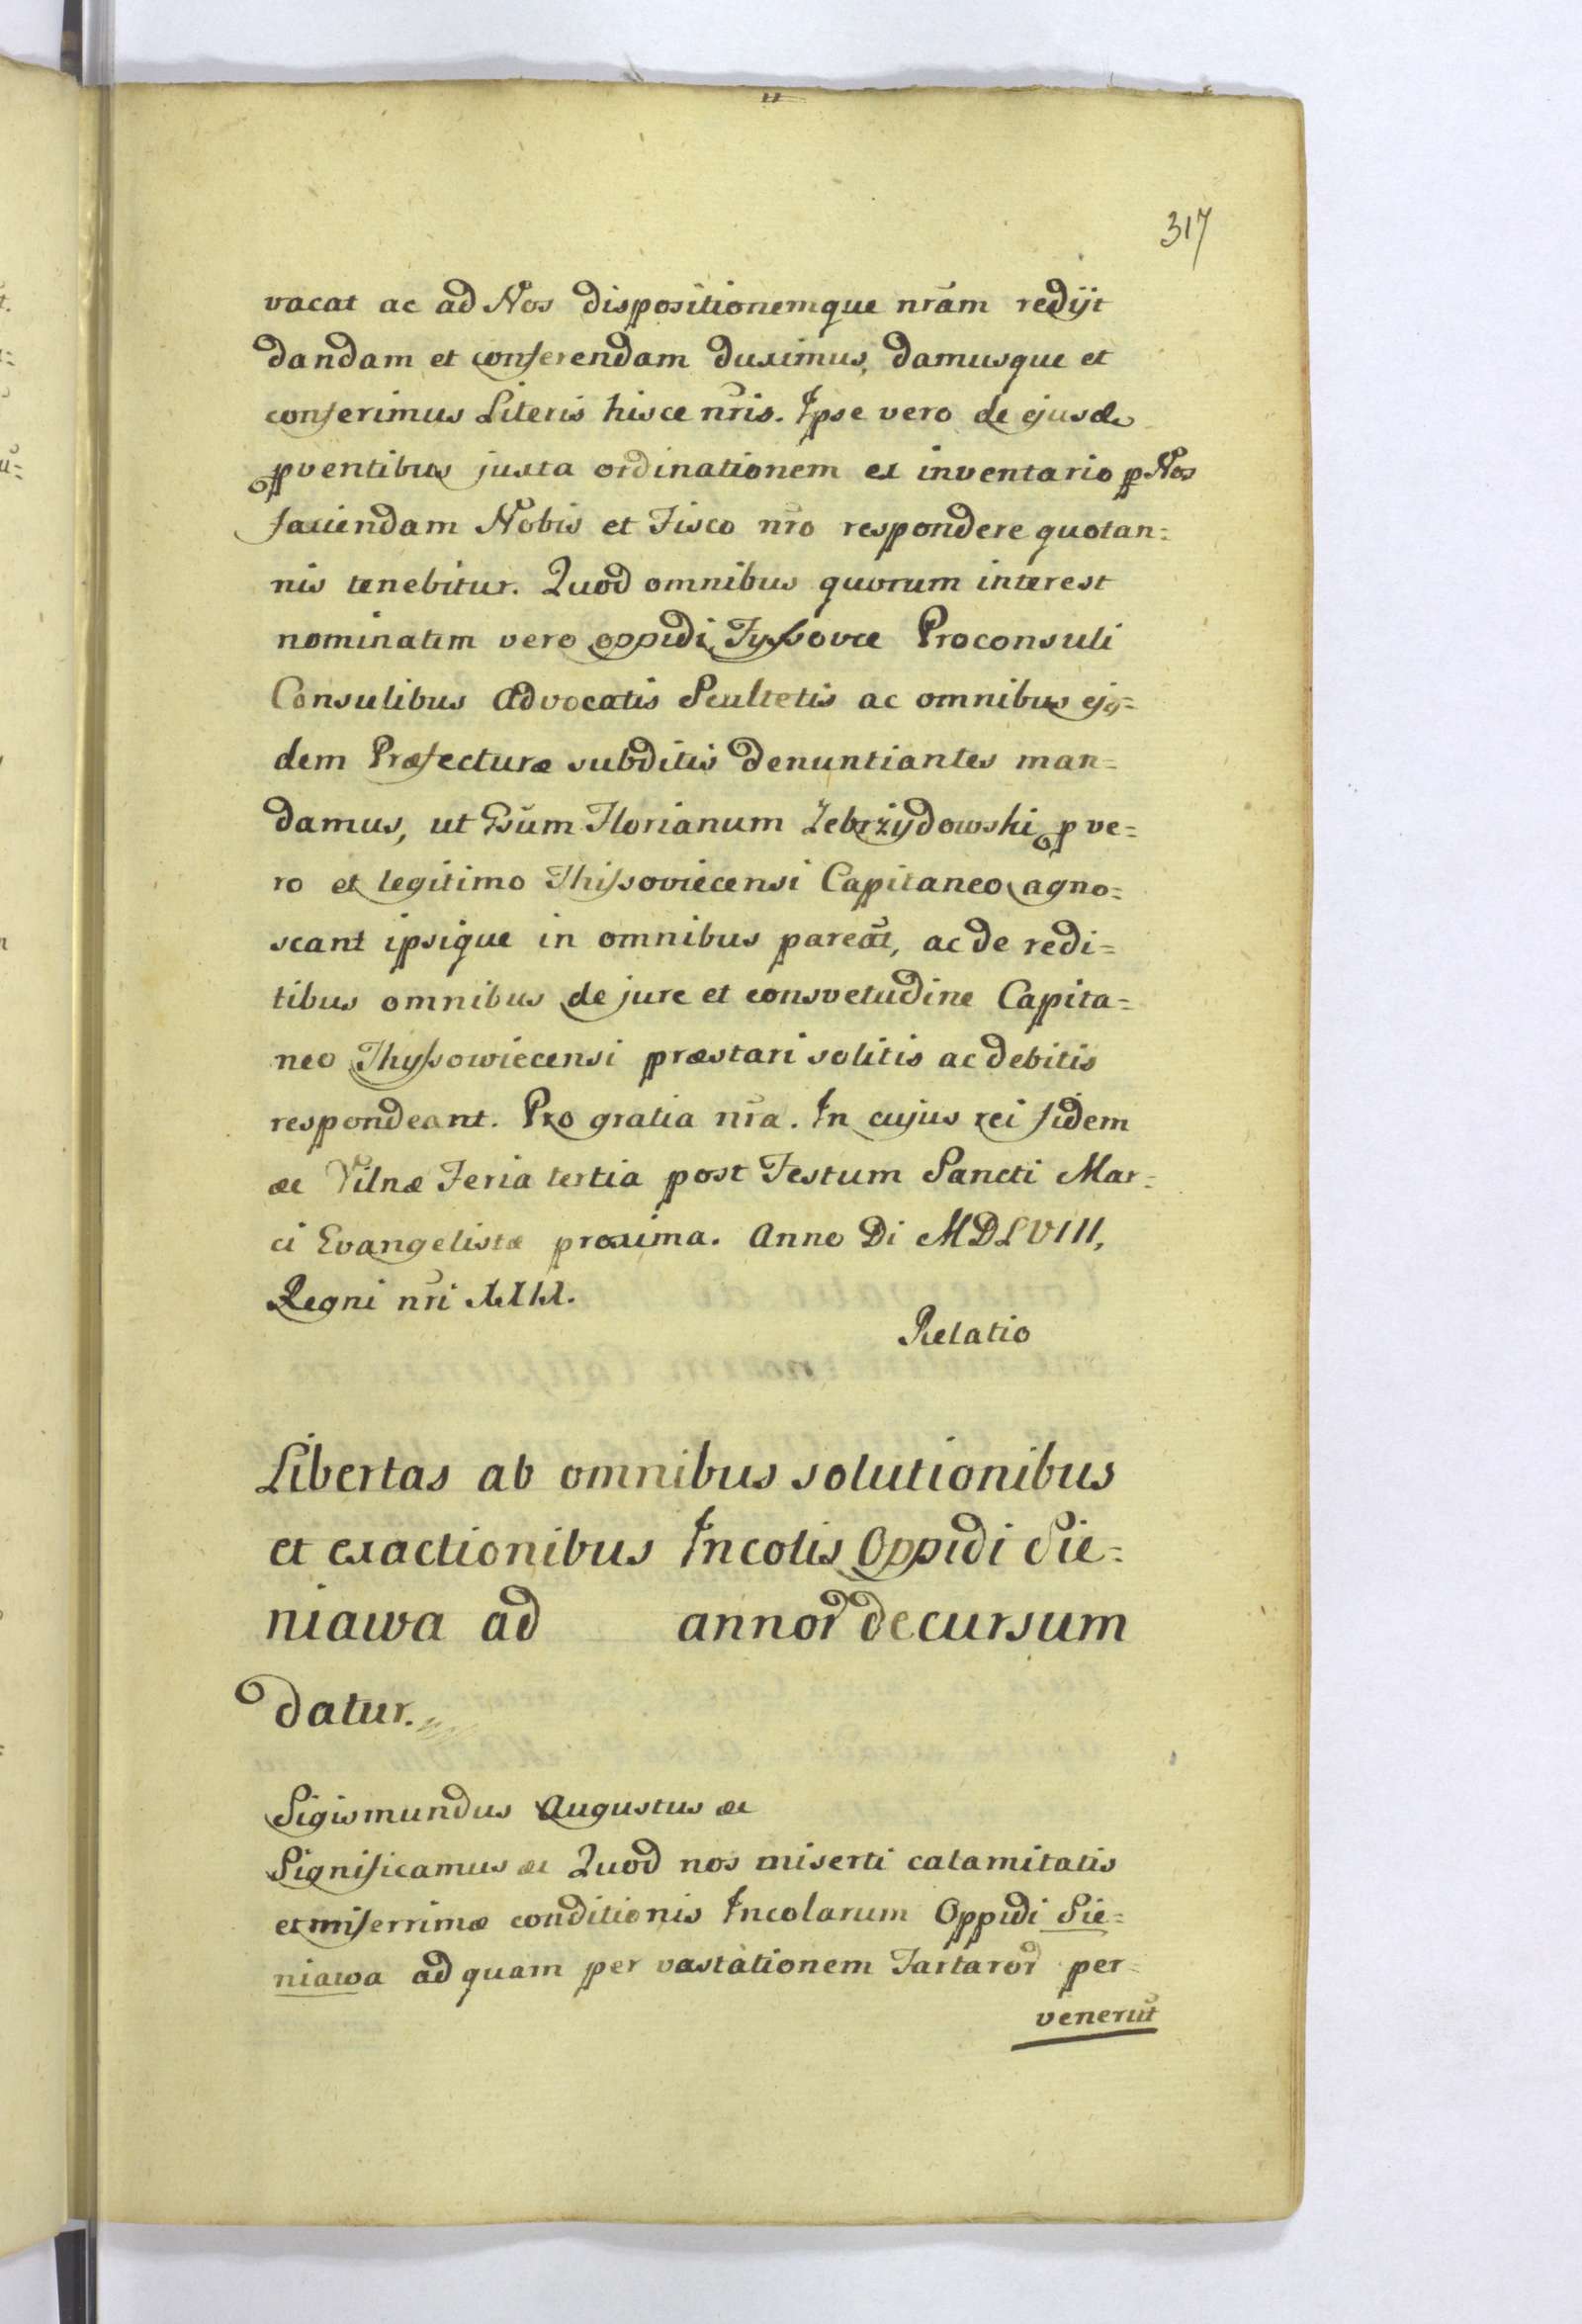 317
vacat ac ad Nos dispositionemque nr̃am redijt
dandam et conferendam duximus, damusque et
conferimus Literis hisce nr̃is. Ipse vero de ejusde
pventibus juxta ordinationem ex inventario p Nos
faciendam Nobis et Fisco nr̃o respondere quotan=
nis tenebitur. Quod omnibus quorum interest
nominatim vero oppidi Tyssovce Proconsuli
Consulibus Advocatis Scultetis ac omnibus ejy=
dem Præfecturæ subditis denuntiantes man=
damus, ut Gsũm Florianum Zebrzydowski p ve=
ro et legitimo Thissoviecensi Capitaneo agno=
scant ipsique in omnibus pareãt, ac de redi=
tibus omnibus de jure et consvetudine Capita=
neo Thyssowiecensi præstari solitis ac debitis
respondeant. Pro gratia nr̃a. In cujus rei fidem
&c Vilnæ Feria tertia post Festum Sancti Mar=
ci Evangelistæ proxima. Anno Di MDLVIII,
Regni nr̃i
Relatio
Libertas ab omnibus solutionibus
et exactionibus Incolis Oppidi Sie=
niawa ad annor decursum
datur.
Sigismundus Augustus &c
Significamus &c Quod nos miserti calamitatis
et miserrimæ conditionis Incolarum Oppidi Sie=
niawa ad quam per vastationem Tartaror per=
venerũt